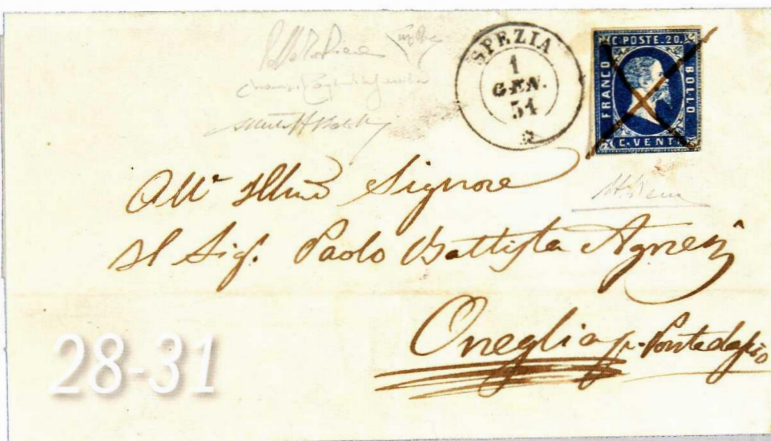 SPEZIA
1
GEN.
51
C. POSTE. 20.
FRANCO
BOLLO
C. VENTI
All' Illmo Signore
Il Sig. Paolo Battista Agnesi
Oneglia p. Pontedassio
28-31